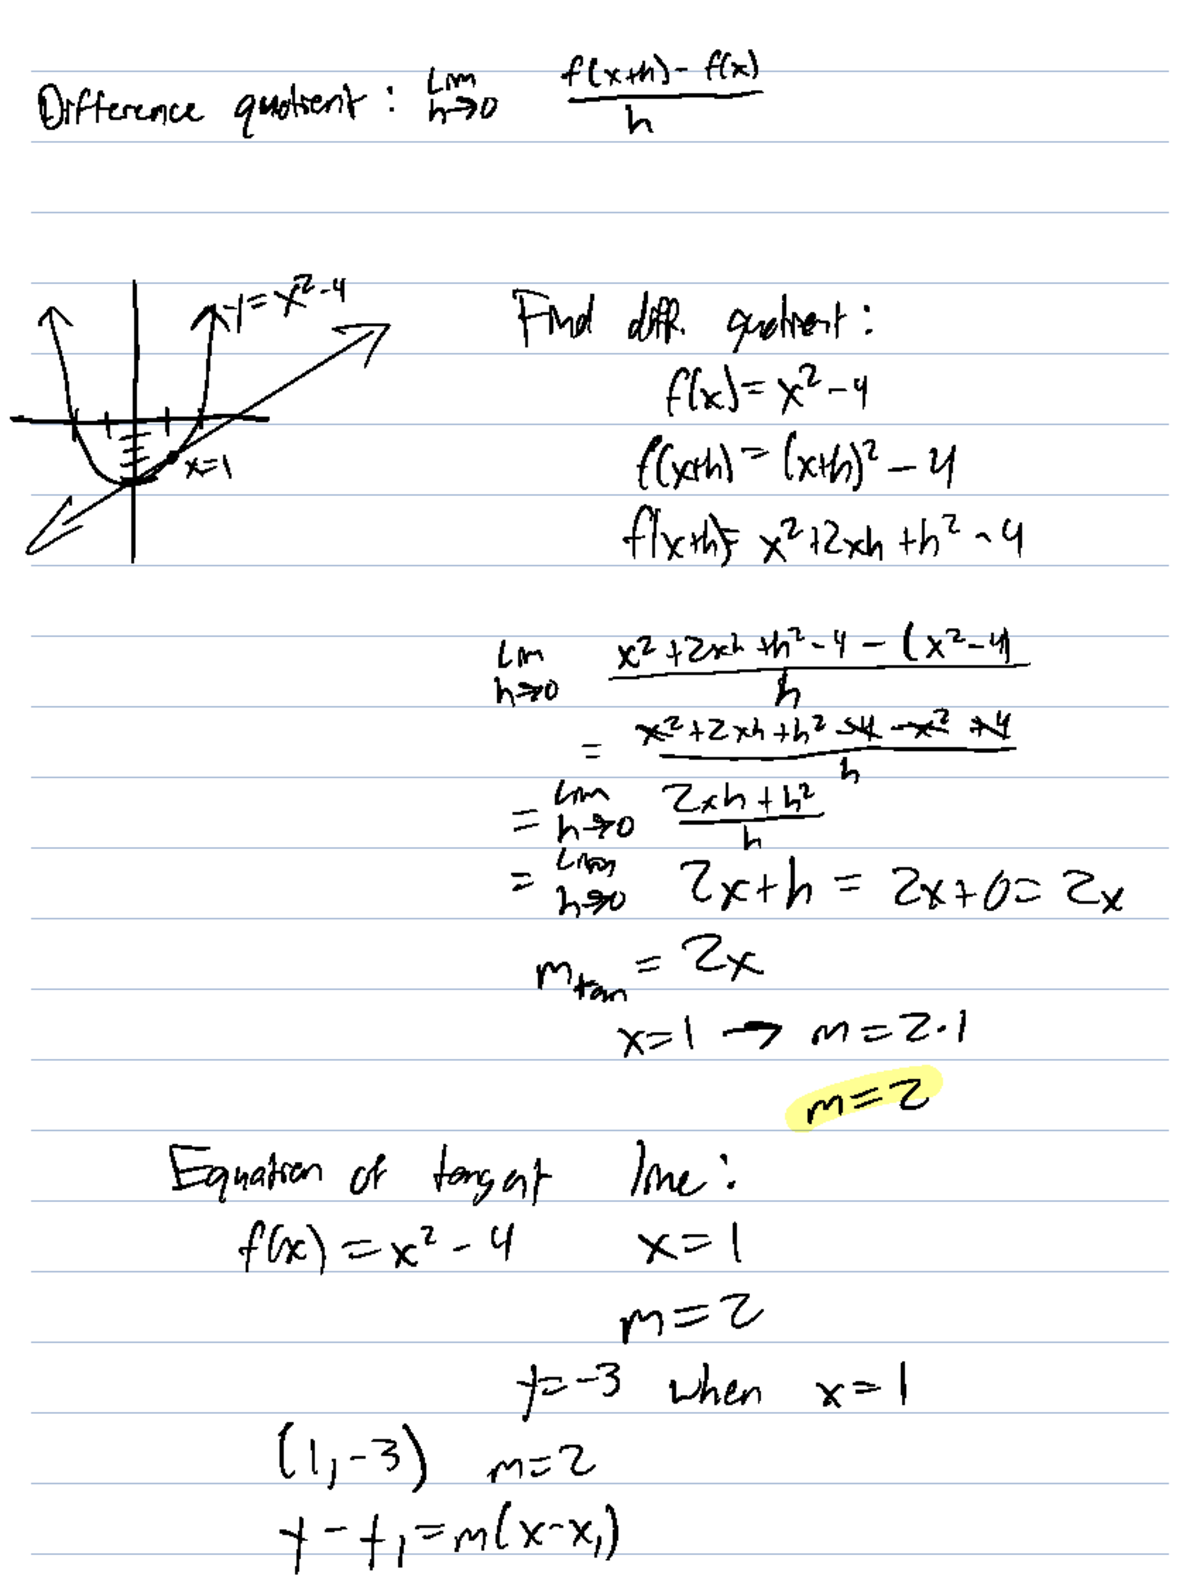 Difference quotient: Lim h→0 (f(x+h) - f(x))/h
y = x² - 4
x=1
Find diff. quotient:
f(x) = x² - 4
f(x+h) = (x+h)² - 4
f(x+h) = x² + 2xh + h² - 4
Lim h→0 (x² + 2xh + h² - 4 - (x² - 4))/h
= (x² + 2xh + h² - 4 - x² + 4)/h
= Lim h→0 (2xh + h²)/h
= Lim h→0 2x + h = 2x + 0 = 2x
m_tan = 2x
x=1 → m = 2·1
m = 2
Equation of tangent line:
f(x) = x² - 4 x = 1
m = 2
y = -3 when x = 1
(1, -3) m = 2
y - y₁ = m(x - x₁)